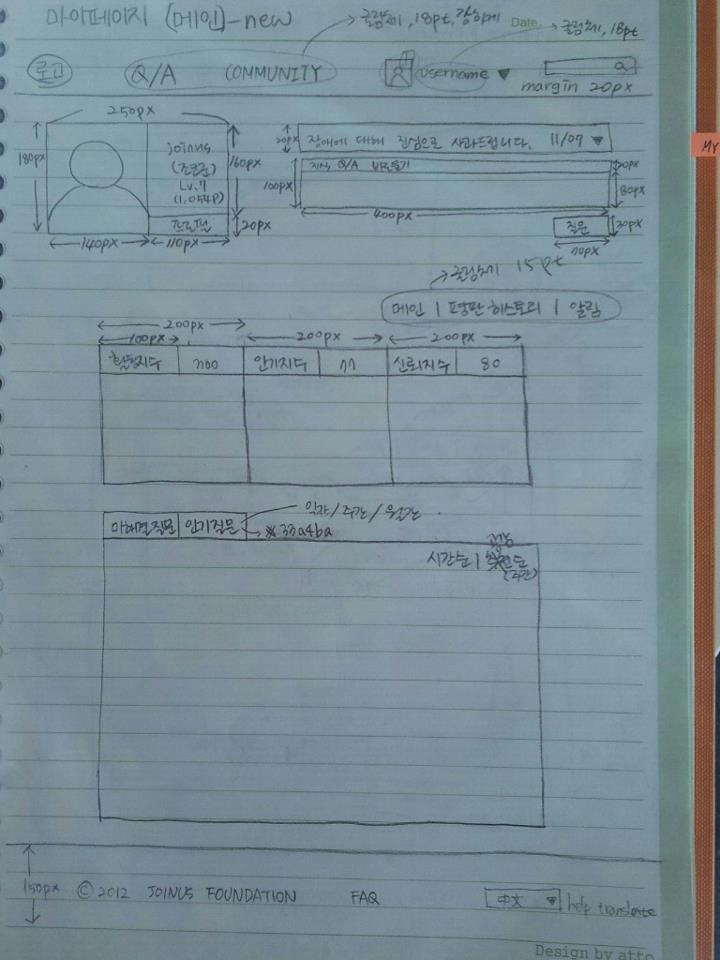 마이페이지 (메인)-new
굴림체, 18pt, 강하게
Date.
굴림체, 18pt
로고
Q/A
COMMUNITY
username ▼
Q
margin 20px
250px
180px
joinus
Lv.7
(1,054P)
160px
프로필
20px
140px
110px
20px
장애에 대해 진심으로 사과드립니다. 11/07 ▼
지식 Q/A 바로묻기
20px
100px
80px
400px
질문
30px
70px
굴림체 15pt
메인 | 평판 히스토리 | 알림
200px
200px
200px
100px
활동지수
700
인기지수
77
신뢰지수
80
미해결질문
인기질문
일간/주간/월간
※ 33a4ba
시간순 |
(주간)
150px
© 2012 JOINUS FOUNDATION
FAQ
中文 ▼
help translate
Design by atto
MY